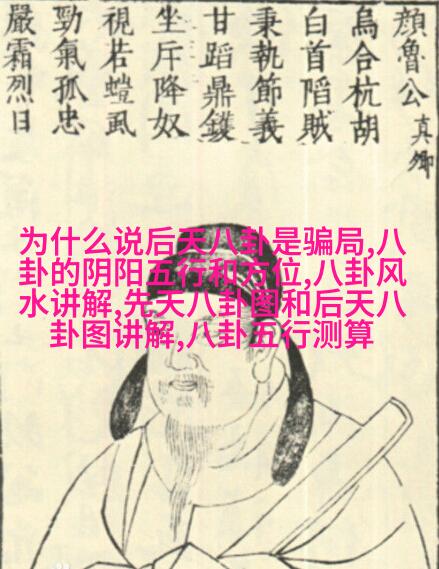 顔魯公真卿
烏合杭胡
白首䧟賊
秉執節義
甘蹈鼎鑊
坐斥降奴
視若螘虱
勁氣孤忠
嚴霜烈日
为什么说后天八卦是骗局,八
卦的阴阳五行和方位,八卦风
水讲解,先天八卦图和后天八
卦图讲解,八卦五行测算